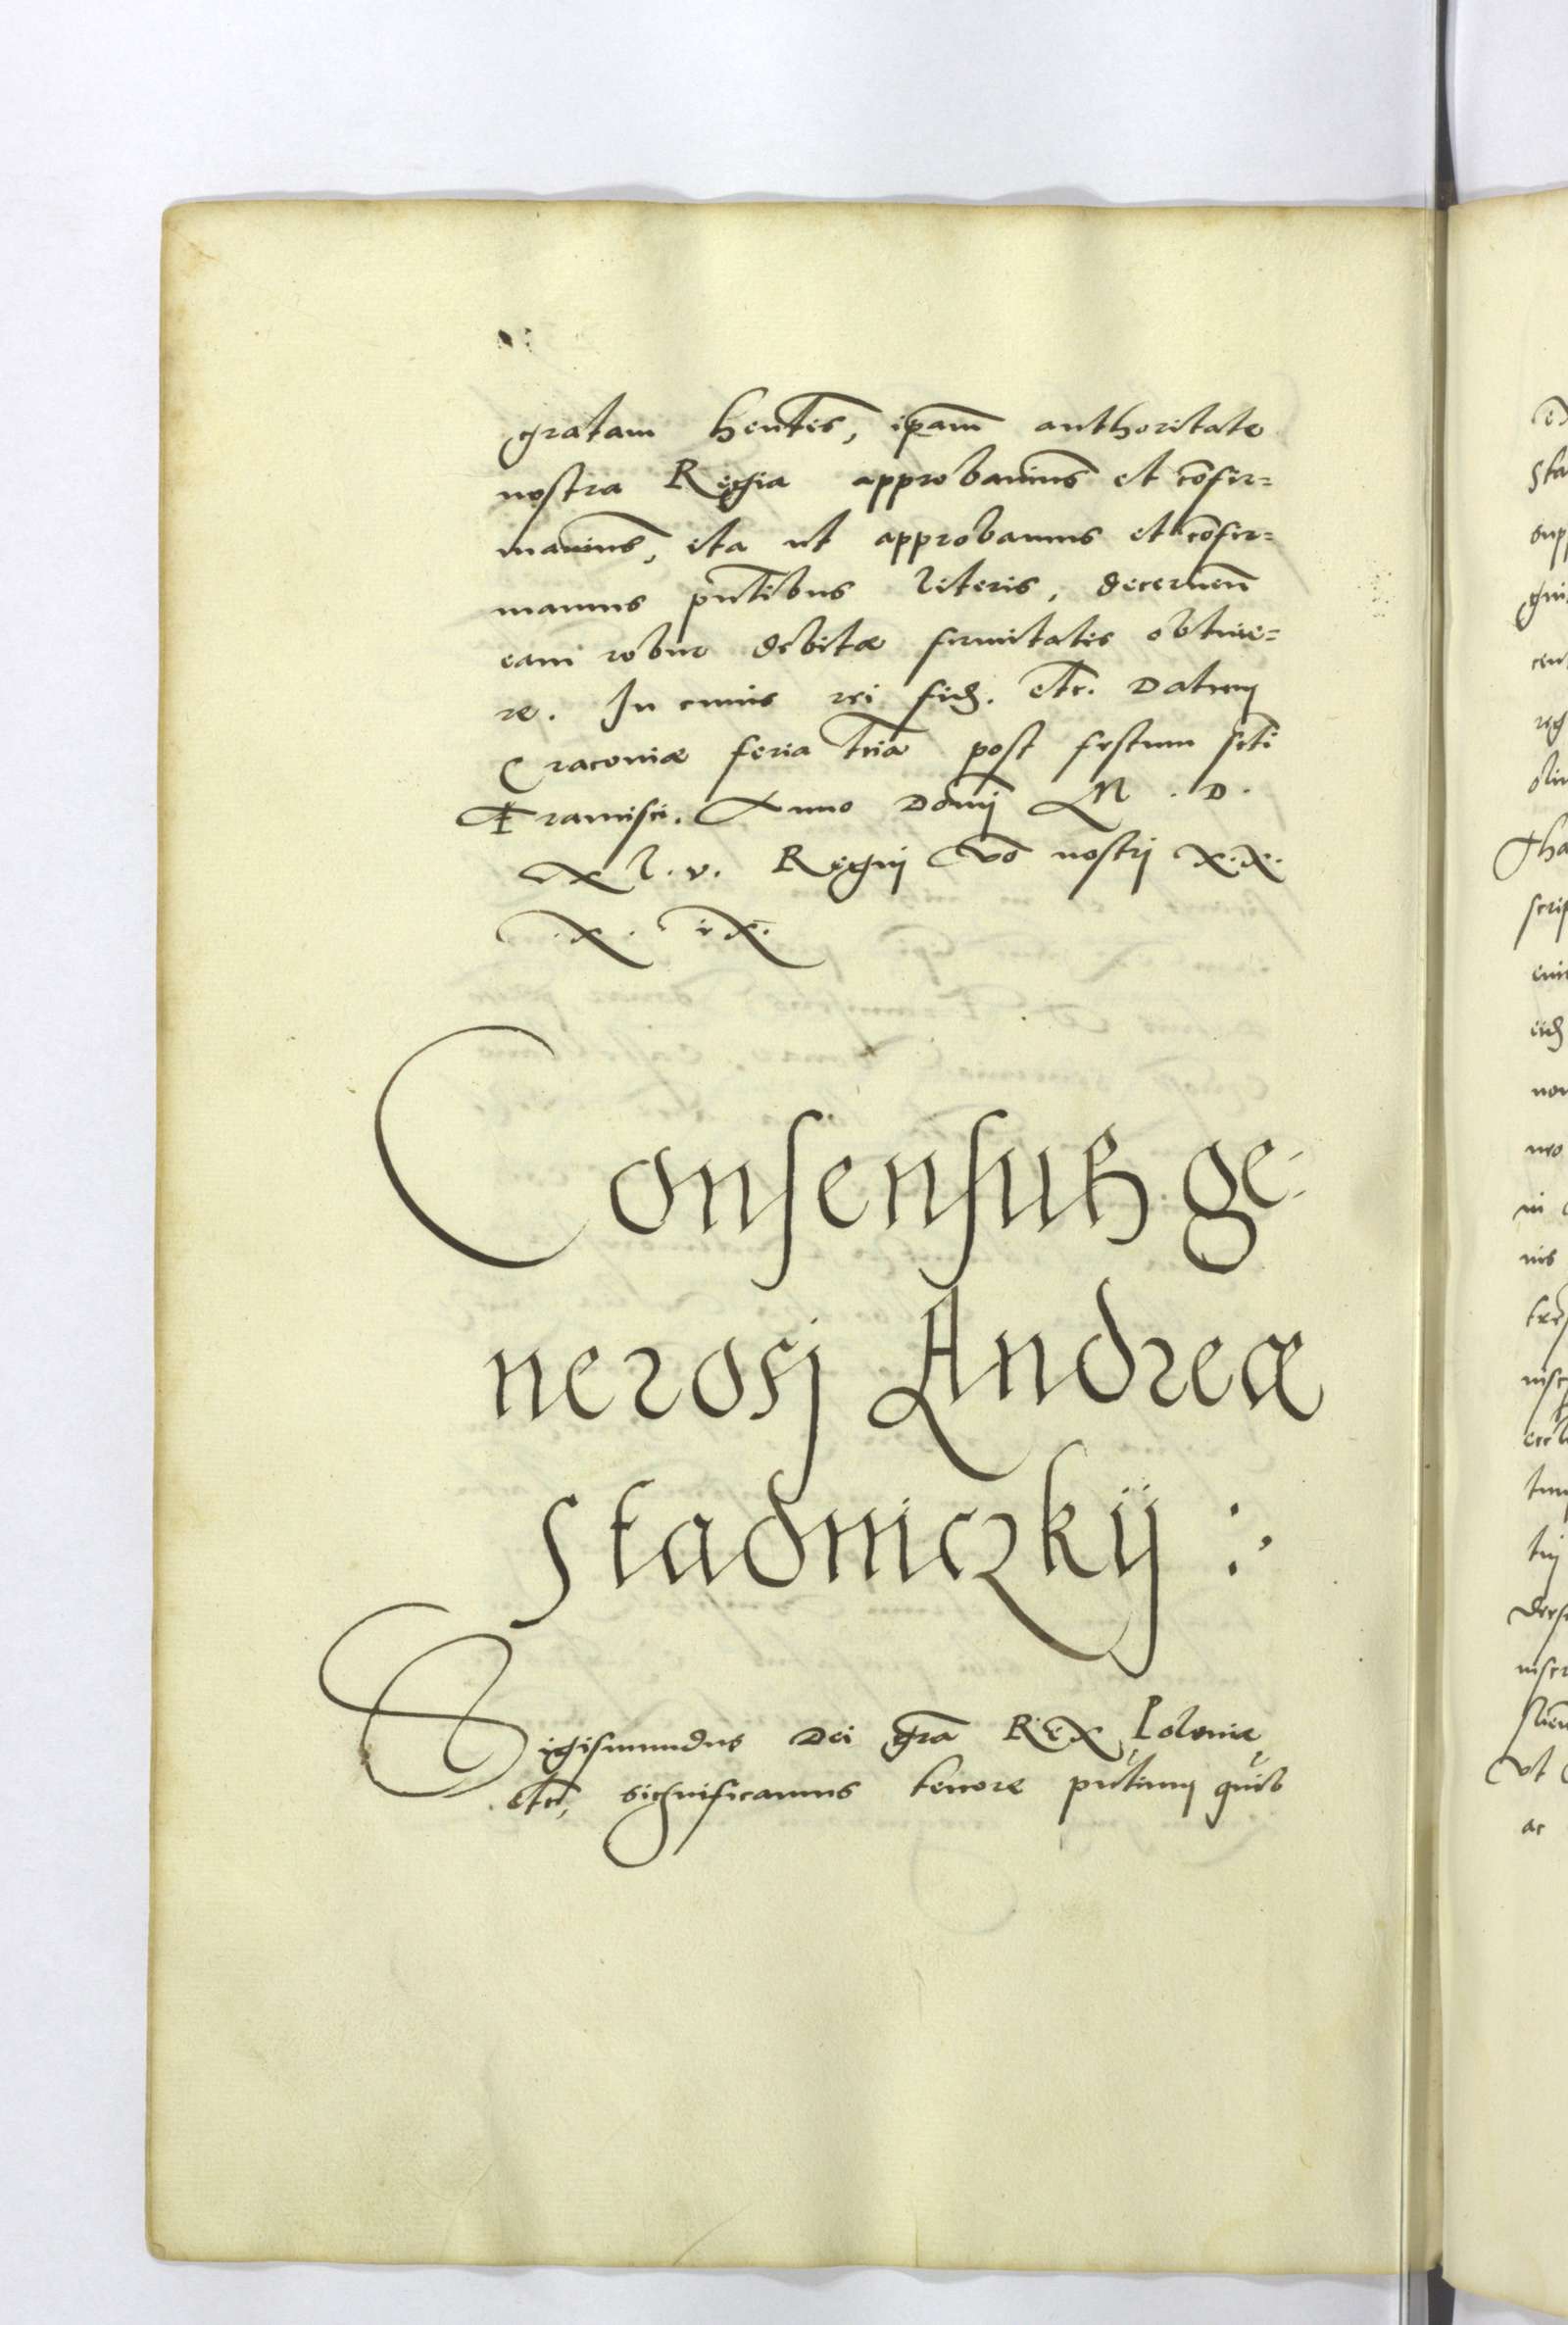 gratam hentes, ipam authoritate
nostra Regia approbavimus et cõfir=
mavimus, ita ut approbamus et cõfir=
mamus pntibus literis, decernen
eam robur debitæ firmitatis obtine=
re. In cuius rei fid. etc. Datum
Cracoviæ feria tria post festum scti
Francisci. Anno Domij M . D .
X l . v . Regnj vo nostrj X.X.
.X. iX.
Consensus ge:
nerosj Andreæ
Stadniczkij :.
Sigismundus Dei gra REX Poloniæ
etc, significamus tenore pntium quib